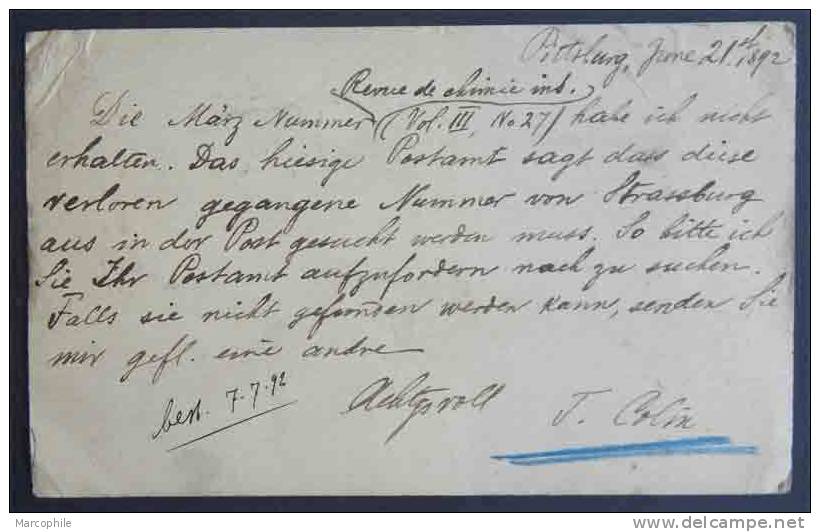 Pittsburg, June 21.st 1892
Revue de chimie ind.
Die März Nummer (Vol. III, No 27) habe ich nicht
erhalten. Das hiesige Postamt sagt dass diese
verloren gegangene Nummer von Strassburg
aus in der Post gesucht werden muss. So bitte ich
Sie Ihr Postamt aufzufordern nach zu suchen.
Falls sie nicht gefunden werden kann, senden Sie
mir gefl. eine andre
Achtgsvoll
T. Colin
best. 7.7.92
Marcophile
http://www.delcampe.net